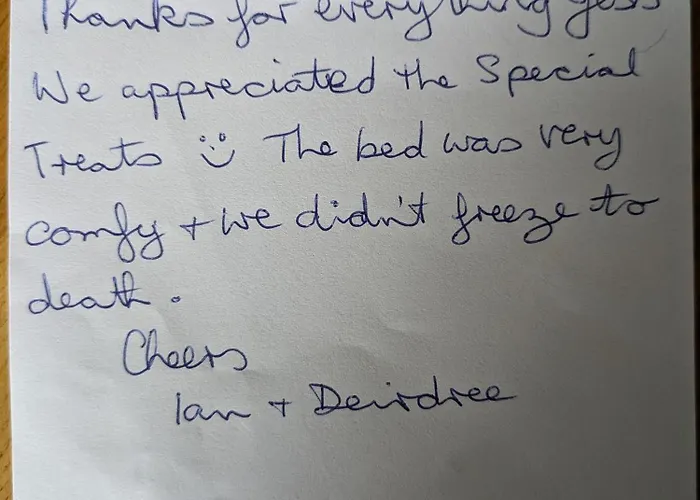 Thanks for everything Jess
We appreciated the Special
Treats :) The bed was very
comfy + we didn't freeze to
death.
Cheers
Ian + Deirdree